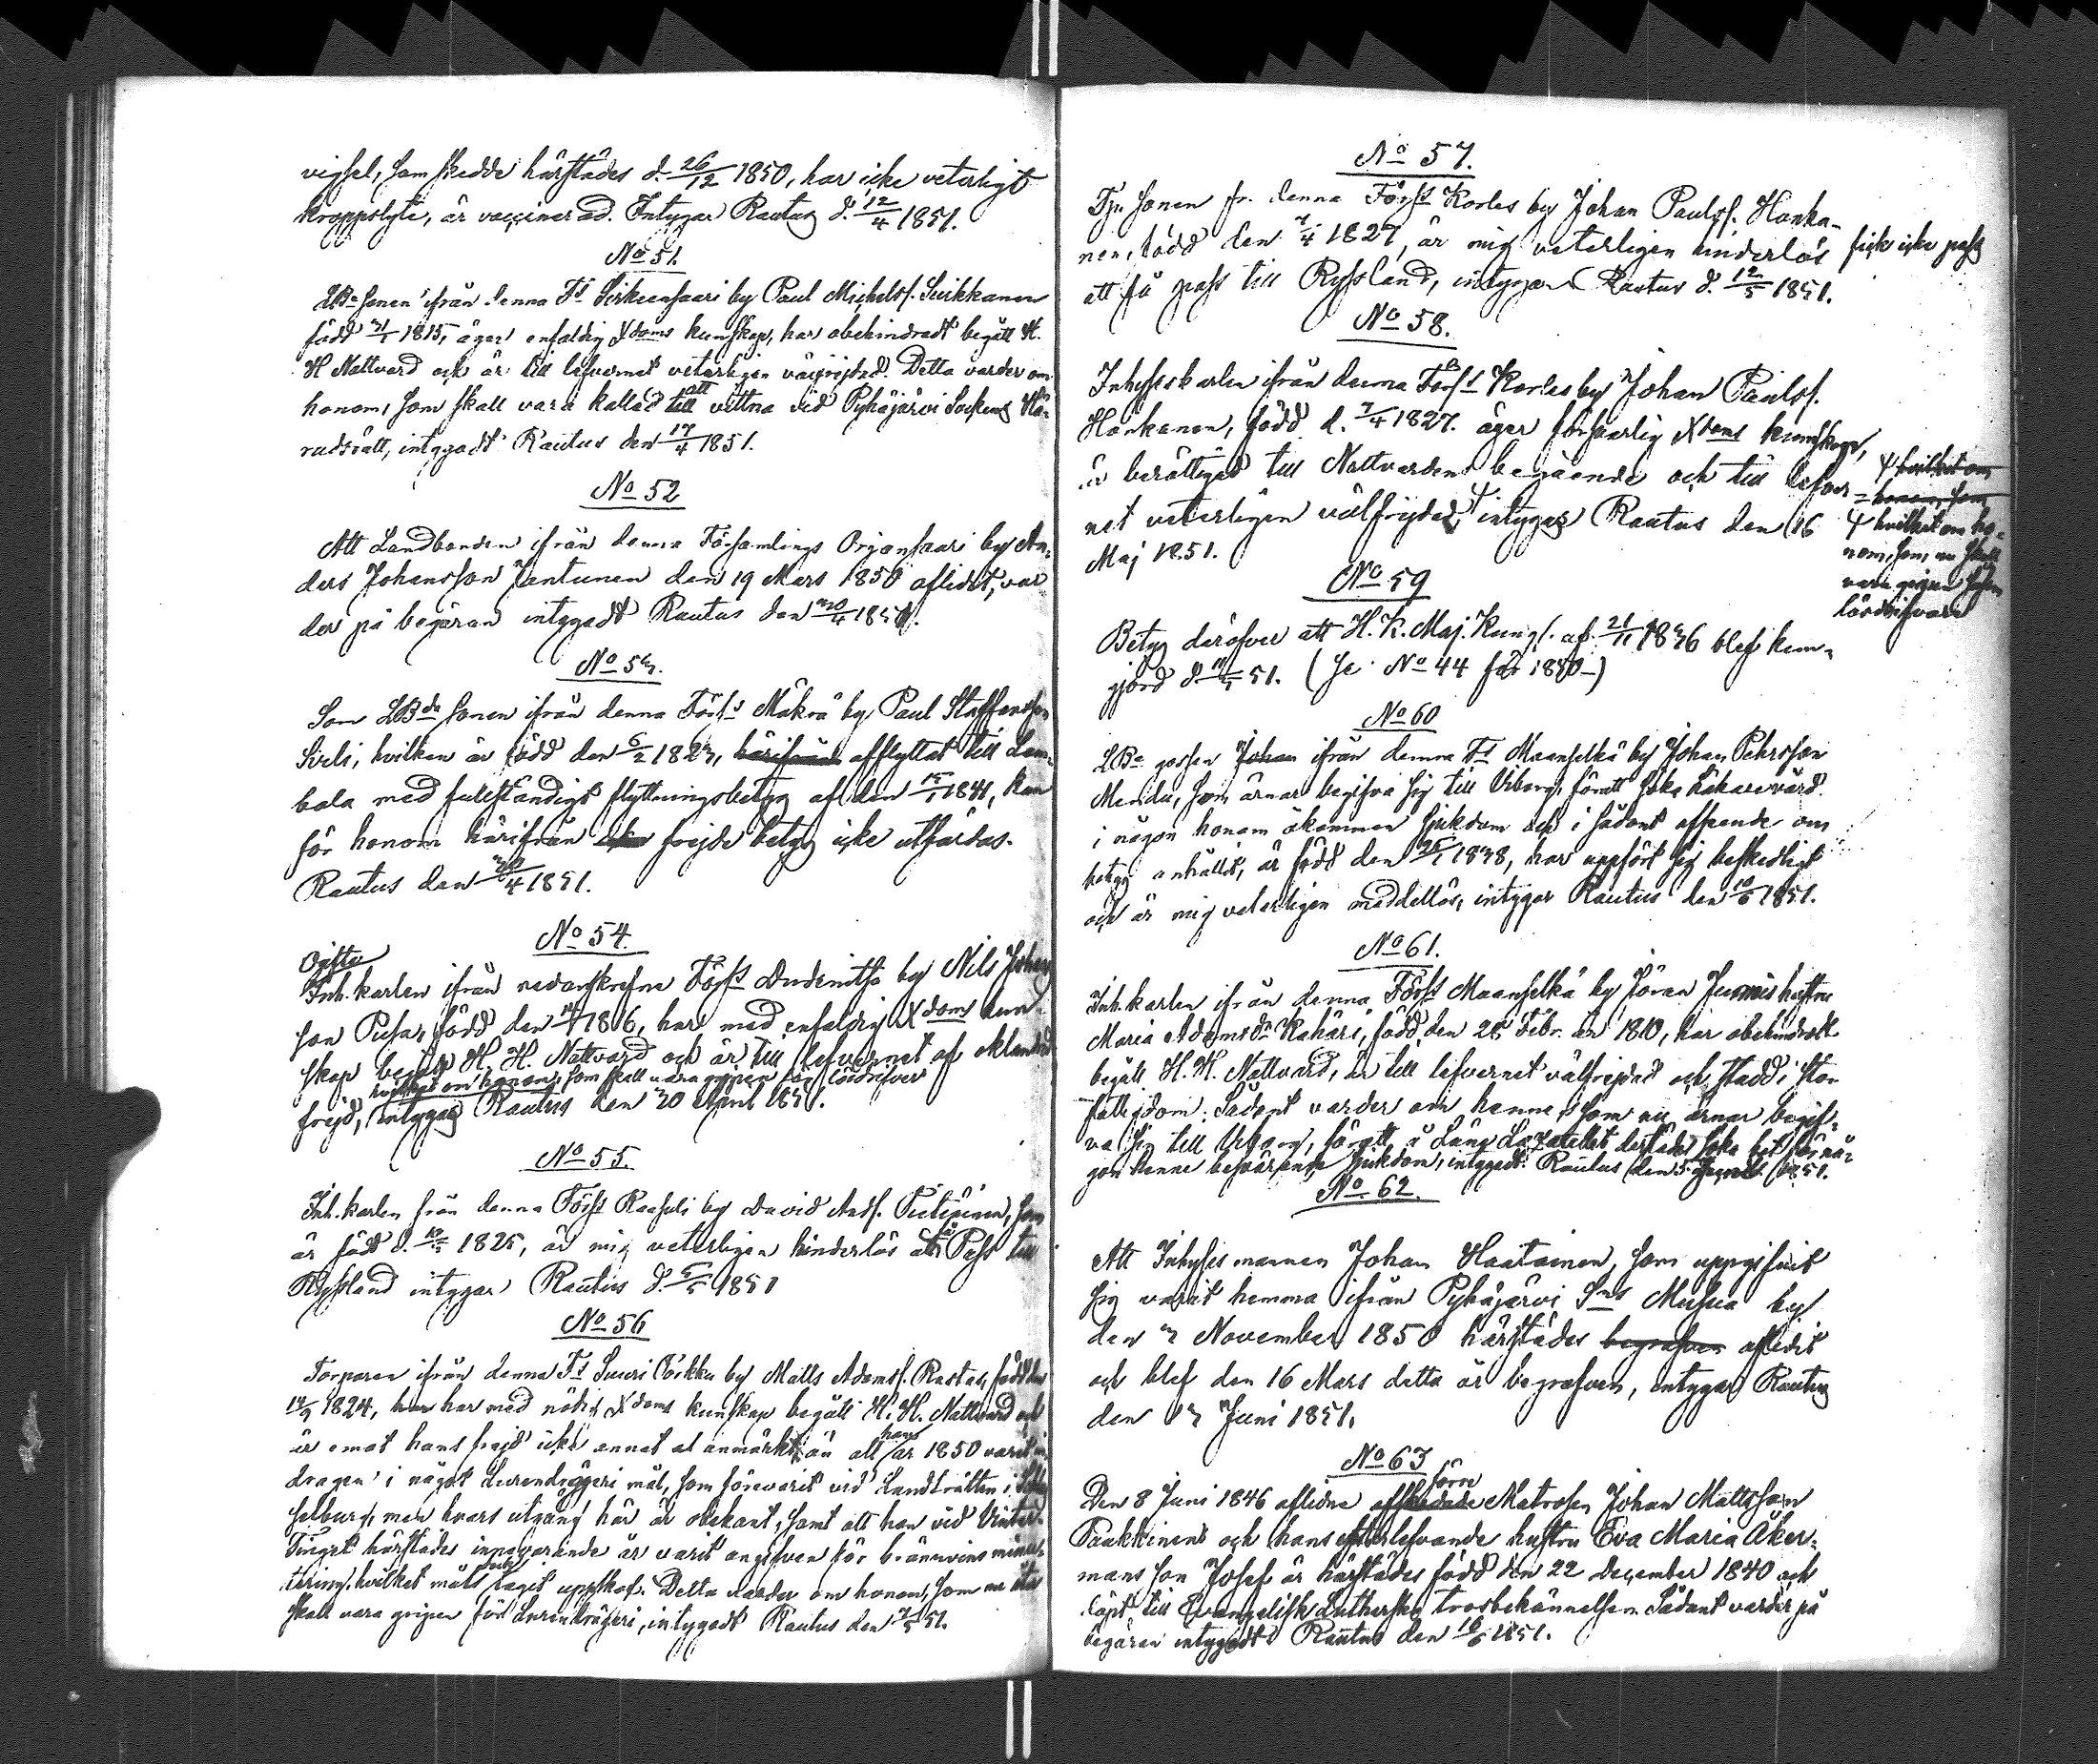 vigsel, som skedde härstädes d. 26/12 1850, har icke veterligt
kroppslyte, är vaccinerad. Intygar Rautus d. 12/4 1851.
No 51.
LBo sonen ifrån denna Fs Sirkeensaari by Paul Michelss. Suikkanen
född 1815, äger enfaldig Xdoms kunskap, har obehindradt begått H.
H Nattvard och är till lefvernet veterligen välfrejdad. Detta varder om
honom, som skall vara kallad till att vittna vid Pyhäjärvi Sockens Hä-
radsrätt, intygadt Rautus den 17/4 1851.
No 52
Att Landbonden ifrån denna Församlings Orjansaari by An-
ders Johansson Jantunen den 19 Mars 1850 aflidit, var-
der på begäran intygadt Rautus den 20/4 1851.
No 53.
Som LBde sonen ifrån denna Förs:s Mäkrä by Paul Staffansson
hvilken är född den 6/2 1823, härifrån afflyttat till Lem-
bala med fullständigt flyttningsbetyg af den 1841, kan
för honom härifrån frejde betyg icke utfärdas.
Rautus den 20/4 1851.
No 54.
Gifte
Inh. karlen ifrån nedanskrefne Förss by Nils Johans-
son född den 1816, har med enfaldig Xdoms kun-
skap begått H. H. Nattvard och är till lefvernet af oklandrad
hvilket om honom, som skall vara gripen för lösdrifveri
frejd, intygas Rautus den 30 April 1851.
No 55.
Inh. karlen från denna Förss Raasuli by David Ands. som
är född d. 1825, är mig veterligen hinderlös att få Pass till
Ryssland intygar Rautus d. 5/5 1851
No 56
Torparen ifrån denna Fs Suuri Porkku by Matts Adamss. Rastas, född den
14/9 1824, har med nödig Xdoms kunskap begått H. H. Nattvard och
är emot hans frejd icke annat at anmärka, än att han år 1850 varit in-
dragen i något Lurendrägeri mål, som förevarit vid Landträtten i
selburg, men hvars utgång här är obekant, samt att han vid Vinter-
Tinget härstädes innevarande år varit angifven för brännvins minu-
tering, hvilket måls tagit uppskof. Detta varder om honom, som nu
skall vara gripen för Lurendrägeri, intygadt Rautus den 7/5 51.
No 57.
Tjn sonen fr. denna Förss Korles by Johan Paulss. Honka-
nen, född den 7/4 1827, är mig veterligen hinderlös
att få pass till Ryssland, intygar Rautus d. 12/5 1851.
fick icke pass
No 58.
Inhyseskarlen ifrån denna Förss Korles by Johan Paulss.
Honkanen, född d. 7/4 1827. äger försvarlig Xdoms kunskap,
är berättigad till Nattvardens begående och till lefver-
net veterligen välfrejdad, intygas Rautus den 16
Maj 1851.
hvilket om
honom, som
hvilket om ho-
nom, som, nu skall
vara gripen såsom
lösdrifvare
No 59
Betyg deröfver att H. K. Maj. Kungl. af 21/11 1836 blef kun-
gjord d. 51. (se No 44 för 1850-)
No 60
LBo gossen Johan ifrån denna Fs Maanselkä by Johan Pehrsson
som ärnar begifva sig till Viborg, föratt söka Läkarevård
i någon honom åkommen sjukdom och i sådant afseende om
betyg anhållit, är född den 25/1 1838, har uppfört sig beskedligt
och är mig veterligen meddellös, intygar Rautus den 10/6 1851.
No 61.
Inh. karlen ifrån denna Förss Maanselkä by Jöran hustru
Maria Adamsdr Kähäri, född den 25 Febr. år 1810, har obehindradt
begått H. H. Nattvard, är till lefvernet välfrejdad och stadd i stor
fattigdom. Sådant varder om henne, som nu ärnar begif-
va sig till Viborg, föratt å Läns Lazarettet derstädes söka bot för nå-
gon henne besvärande sjukdom, intygadt. Rautus den 5 1851.
No 62.
Att Inhyses mannen Johan Haatainen, som uppgifvit
sig varit hemma ifrån Pyhäjärvi Sns Musua by
den 3 November 1850 härstädes begrafven aflidit
och blef den 16 Mars detta år begrafven, intygar Rautus
den 13 Juni 1851.
No 63
Den 8 Juni 1846 aflidne afskedade förre Matrosen Johan Mattsson
Paakkinens och hans efterlefvande hustru Eva Maria Åker-
mans son Josef är härstädes född den 22 December 1840 och
döpt till Evangelisk Lutherska trosbekännelsen. Sådant varder på
begäran intygadt Rautus den 16/6 1851.